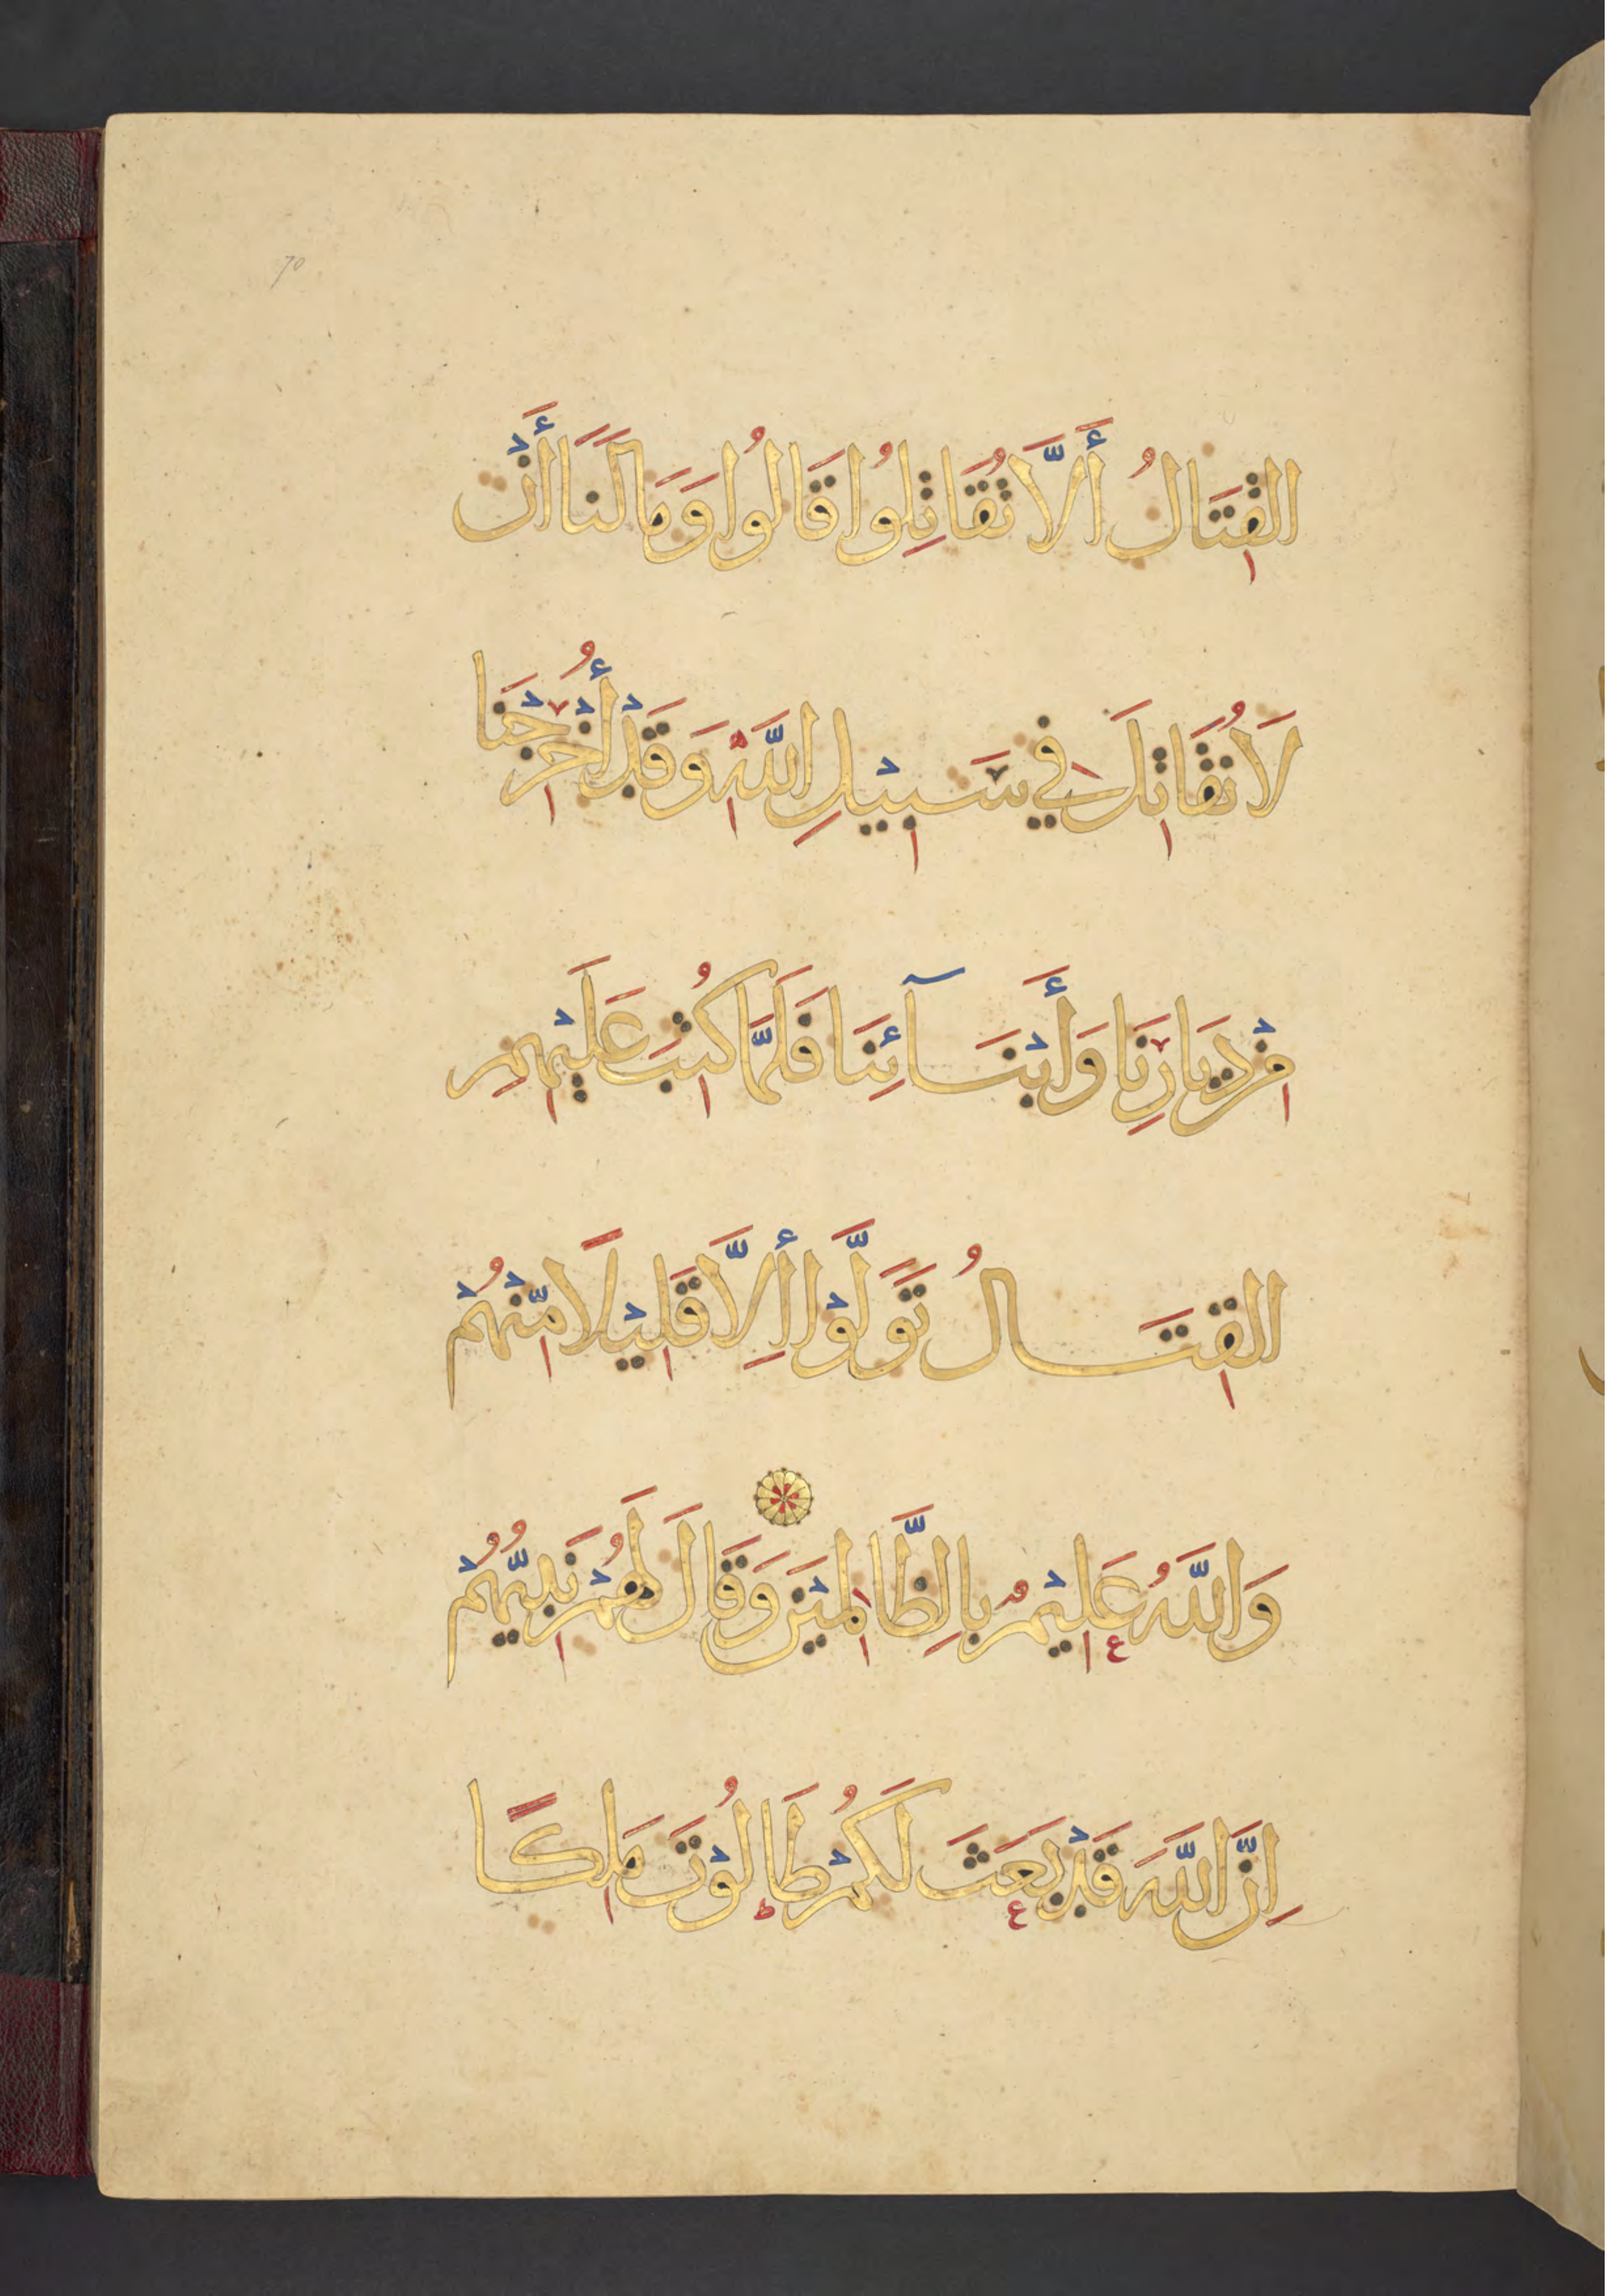 70
القِتَالُ أَلَّا تُقَاتِلُوا قَالُوا وَمَا لَنَا أَنْ
لَا نُقَاتِلَ فِي سَبِيْلِ اللَّهِ وَقَدْ أُخْرِجْنَا
مِنْ دِيَارِنَا وَأَبْنَآئِنَا فَلَمَّا كُتِبَ عَلَيْهِمِ
القِتَالُ تَوَلَّوْا أِلَّا قَلِيْلًا مِّنْهُمْ
وَاللَّهُ عَلِيْمٌ بِالظَّالِمِيْنَ وَقَالَ لَهُمْ نَبِيُّهُمْ
اِنَّ اللَّهَ قَدْ بَعَثَ لَكُمْ طَالُوْتَ مَلِكًا